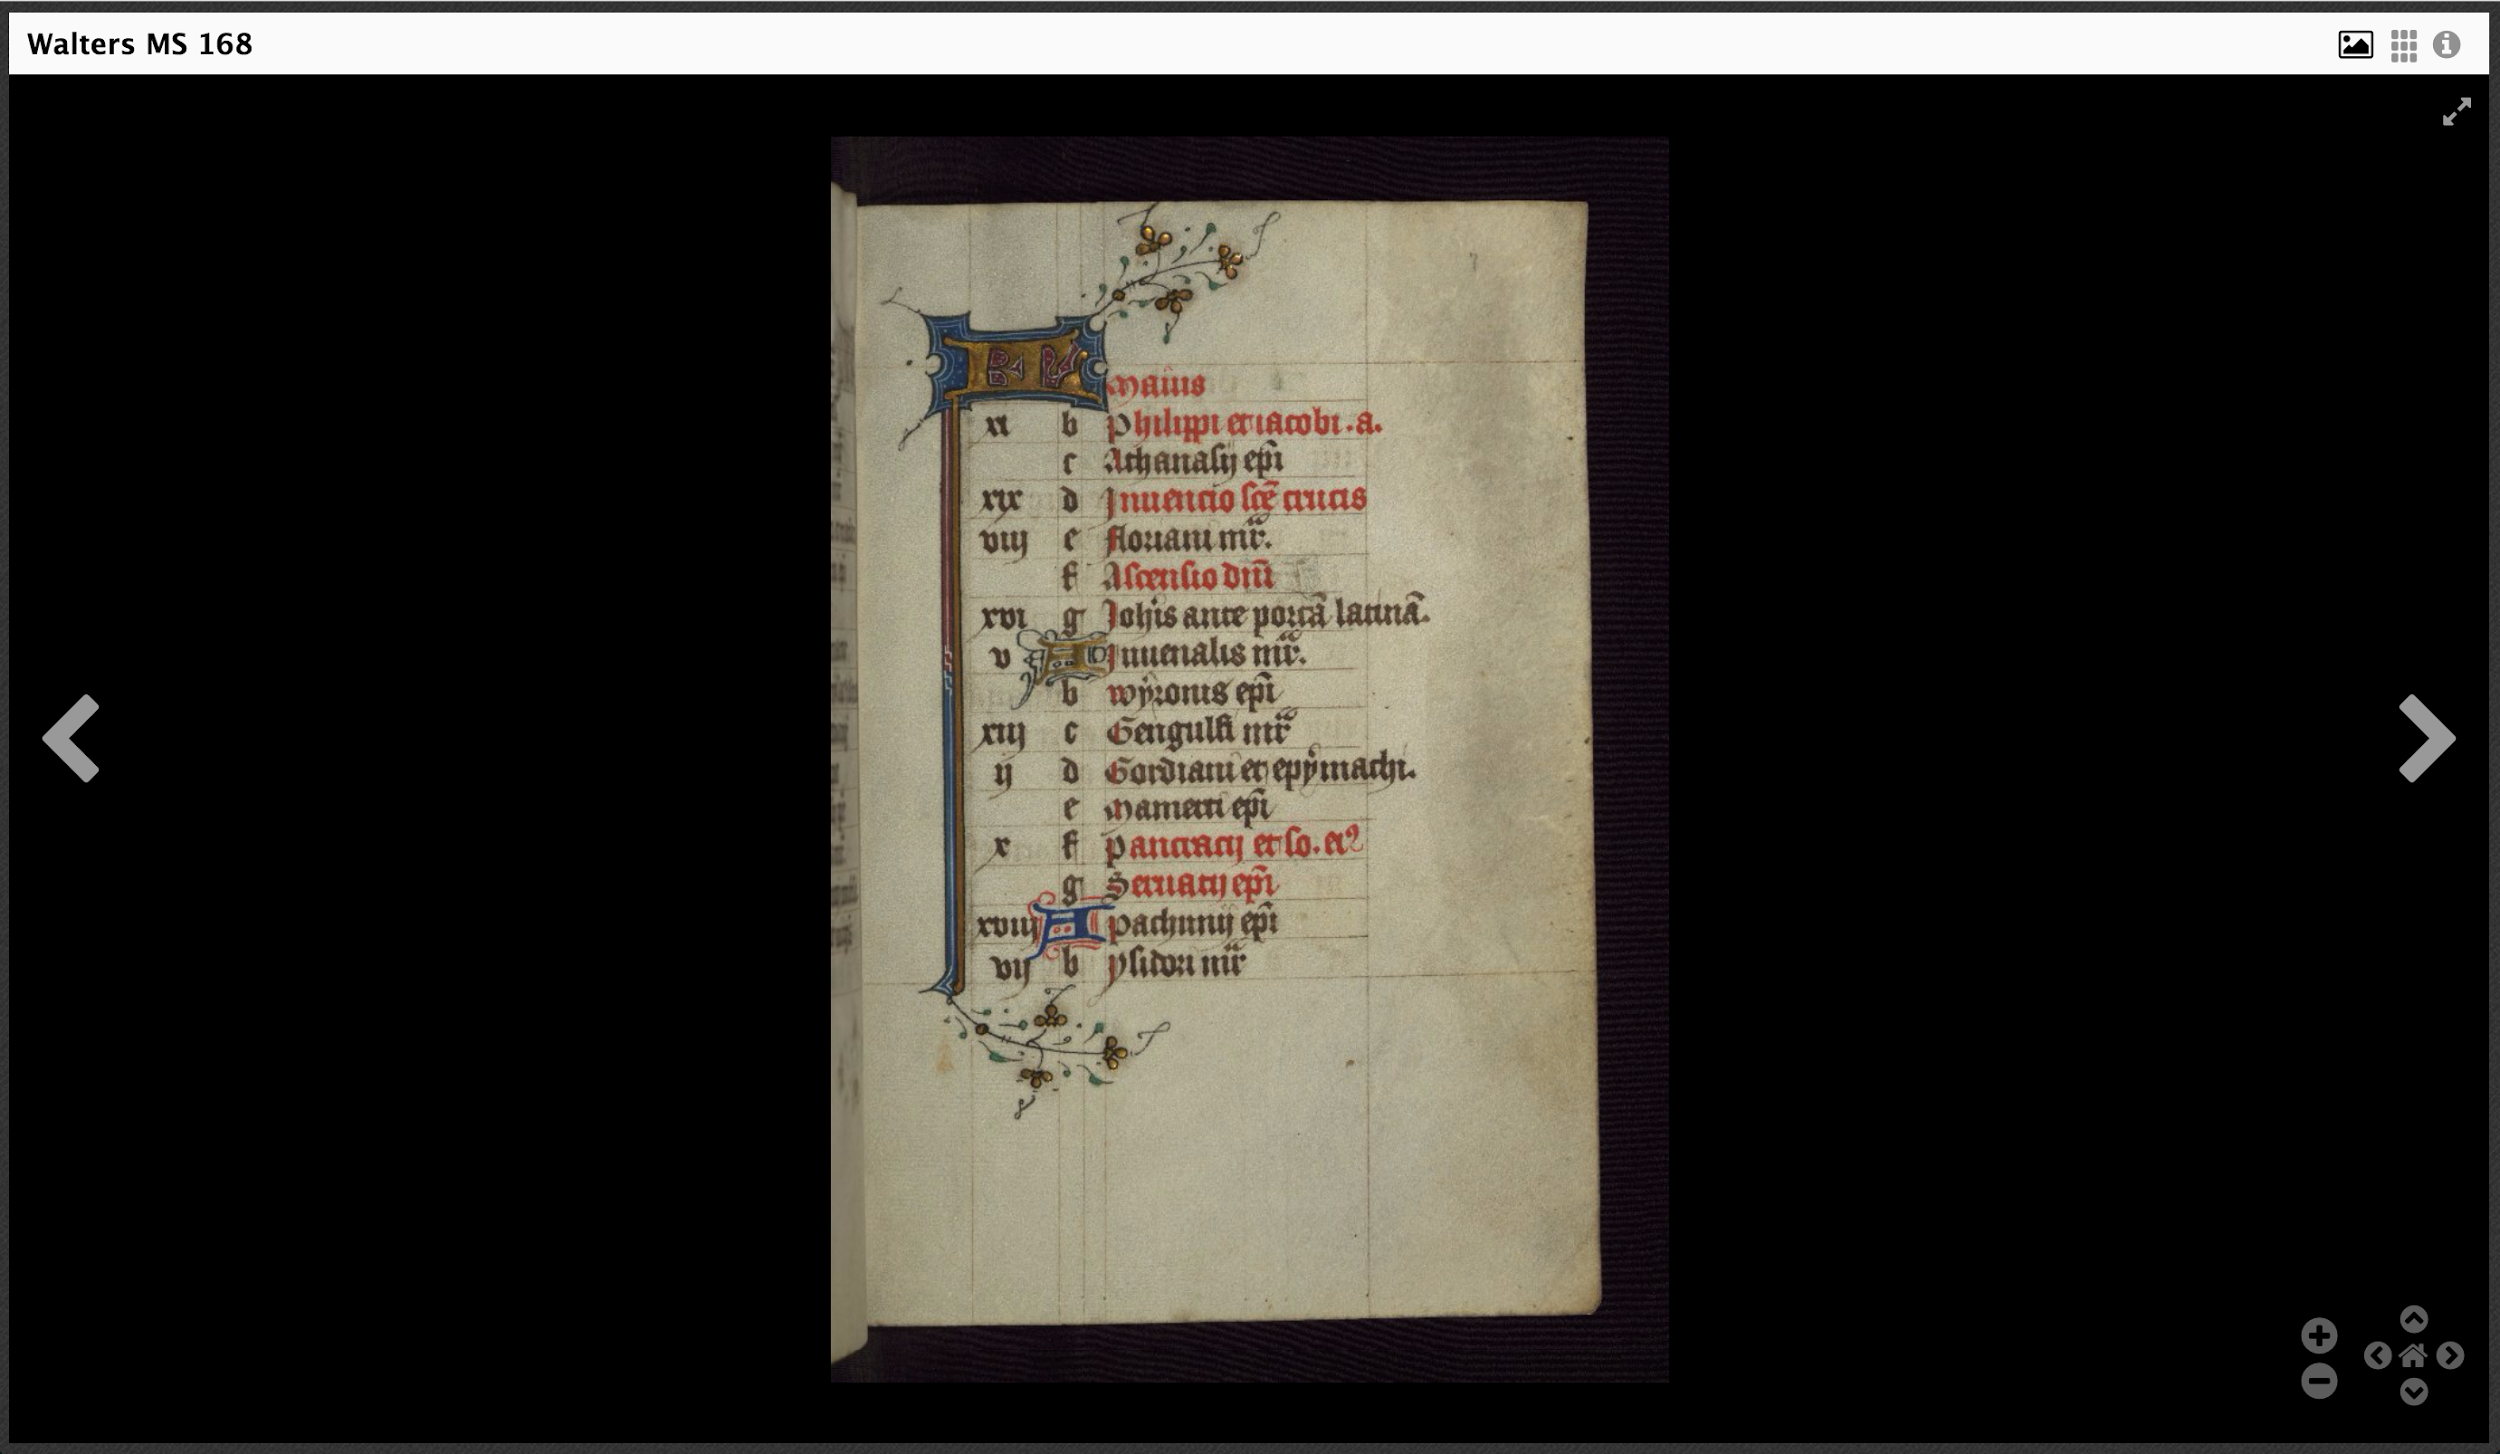 Walters MS 168
KL Maius
xi b Philippi et iacobi .a.
c Athanasij ep̄i
xix d Inuencio sc̄e crucis
viij e floriani mr̄.
f Ascensio dn̄i
xvi g Joh̄is ante portā latinā.
v A Juuenalis mr̄.
b wÿronis ep̄i
xiij c Gengulfi mr̄
ij d Gordiani et epÿmachi.
e Mamerti ep̄i
x f Pancracij et so. eiꝰ
g Seruatij ep̄i
xviij A Pachumij ep̄i
vij b Ysidori mr̄